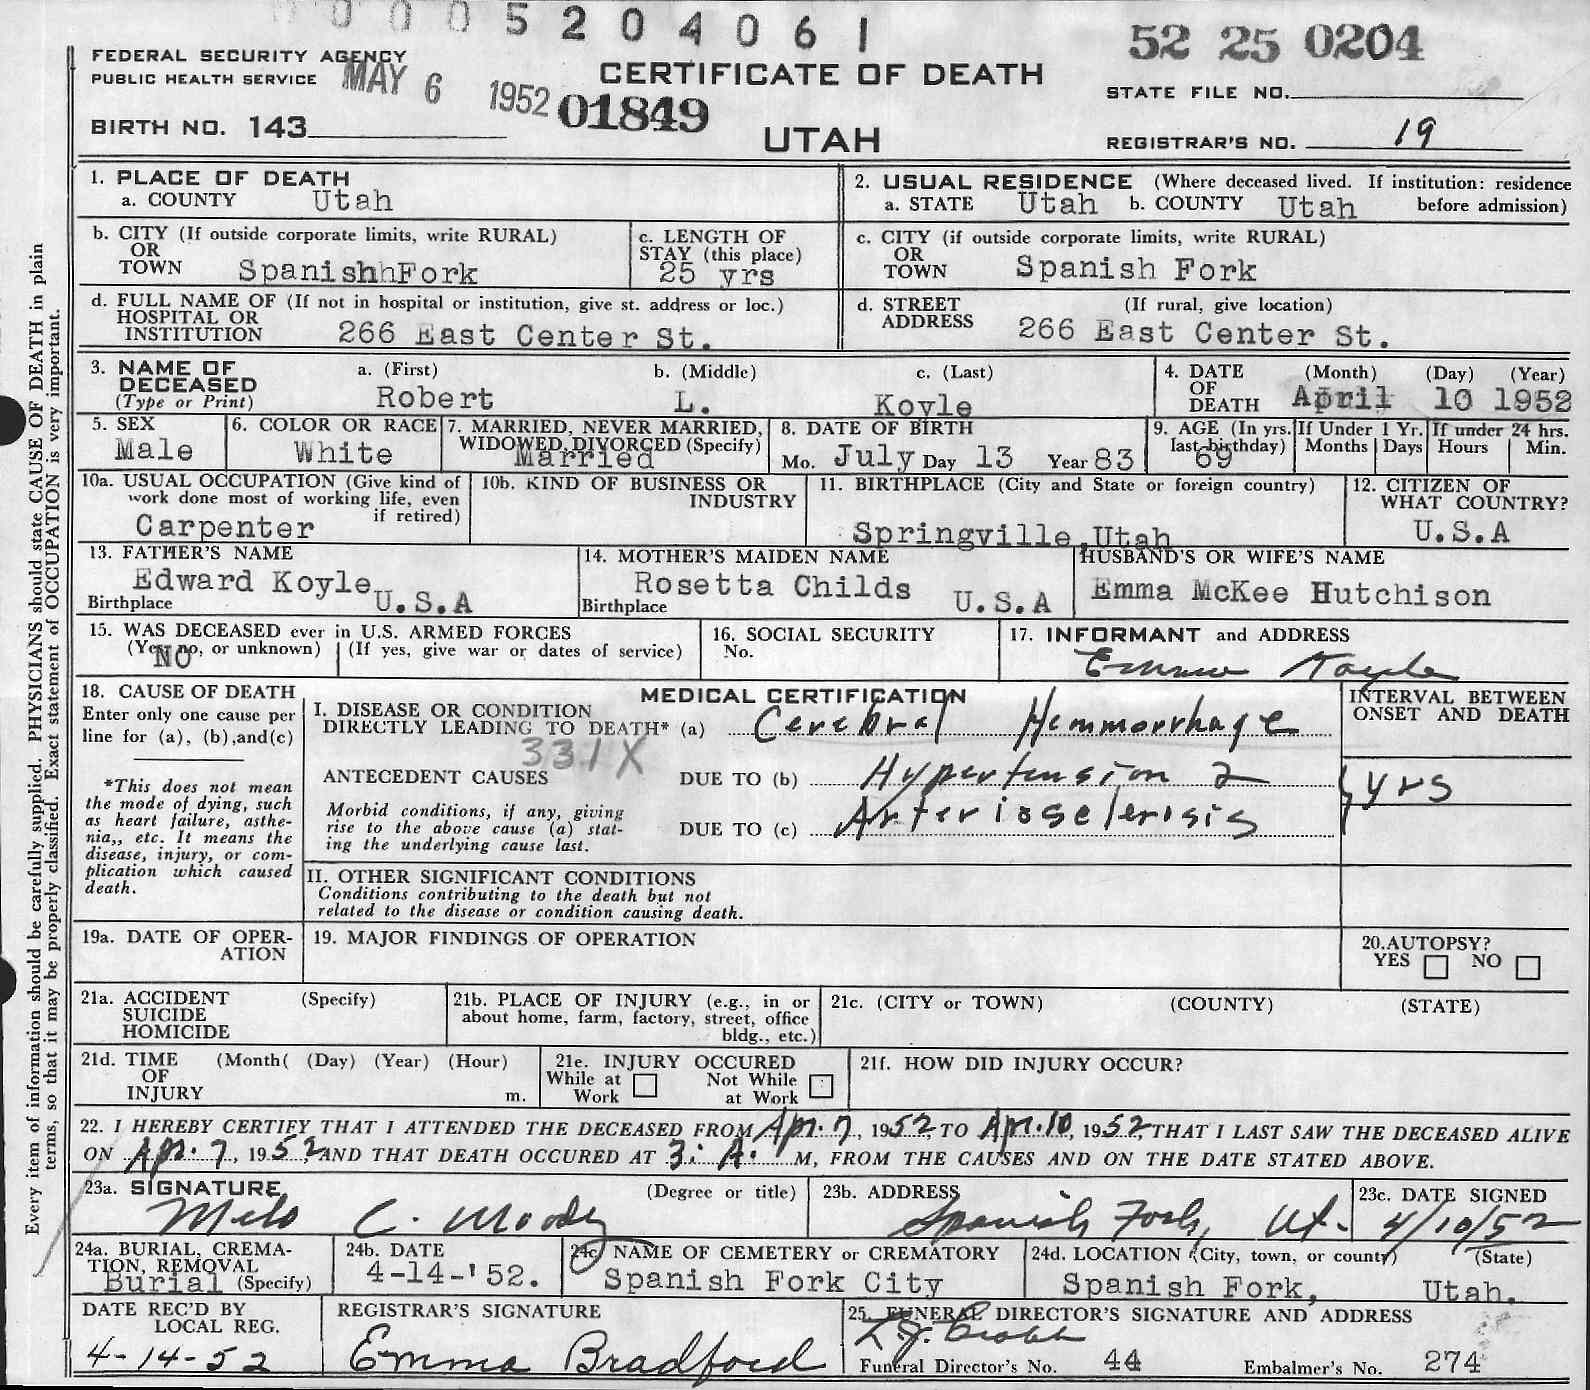 0005204061
52 25 0204
FEDERAL SECURITY AGENCY
PUBLIC HEALTH SERVICE
MAY 6 1952
01849
CERTIFICATE OF DEATH
UTAH
STATE FILE NO.
BIRTH NO. 143
REGISTRAR'S NO. 19
Every item of information should be carefully supplied. PHYSICIANS should state CAUSE OF DEATH in plain
terms, so that it may be properly classified. Exact statement of OCCUPATION is very important.
1. PLACE OF DEATH
a. COUNTY Utah
2. USUAL RESIDENCE (Where deceased lived. If institution: residence
a. STATE Utah b. COUNTY Utah before admission)
b. CITY (If outside corporate limits, write RURAL)
OR
TOWN SpanishhFork
c. LENGTH OF
STAY (this place)
25 yrs
c. CITY (if outside corporate limits, write RURAL)
OR
TOWN Spanish Fork
d. FULL NAME OF (If not in hospital or institution, give st. address or loc.)
HOSPITAL OR
INSTITUTION 266 East Center St.
d. STREET (If rural, give location)
ADDRESS 266 East Center St.
3. NAME OF
DECEASED
(Type or Print)
a. (First) b. (Middle) c. (Last)
Robert L. Koyle
4. DATE (Month) (Day) (Year)
OF
DEATH April 10 1952
5. SEX
Male
6. COLOR OR RACE
White
7. MARRIED, NEVER MARRIED,
WIDOWED, DIVORCED (Specify)
Married
8. DATE OF BIRTH
Mo. July Day 13 Year 83
9. AGE (In yrs.
last birthday)
69
If Under 1 Yr.
Months Days
If under 24 hrs.
Hours Min.
10a. USUAL OCCUPATION (Give kind of
work done most of working life, even
if retired)
Carpenter
10b. KIND OF BUSINESS OR
INDUSTRY
11. BIRTHPLACE (City and State or foreign country)
Springville, Utah
12. CITIZEN OF
WHAT COUNTRY?
U.S.A
13. FATHER'S NAME
Edward Koyle
Birthplace U.S.A
14. MOTHER'S MAIDEN NAME
Rosetta Childs
Birthplace U.S.A
HUSBAND'S OR WIFE'S NAME
Emma McKee Hutchison
15. WAS DECEASED ever in U.S. ARMED FORCES
(Yes, no, or unknown) (If yes, give war or dates of service)
NO
16. SOCIAL SECURITY
No.
17. INFORMANT and ADDRESS
Emma Koyle
18. CAUSE OF DEATH
Enter only one cause per
line for (a), (b),and(c)
*This does not mean
the mode of dying, such
as heart failure, asthe-
nia,, etc. It means the
disease, injury, or com-
plication which caused
death.
MEDICAL CERTIFICATION
I. DISEASE OR CONDITION
DIRECTLY LEADING TO DEATH* (a) Cerebral Hemmorrhage
331X
ANTECEDENT CAUSES DUE TO (b) Hypertension 2
Morbid conditions, if any, giving
rise to the above cause (a) stat-
ing the underlying cause last.
DUE TO (c) Arteriosclerosis
INTERVAL BETWEEN
ONSET AND DEATH
yrs
II. OTHER SIGNIFICANT CONDITIONS
Conditions contributing to the death but not
related to the disease or condition causing death.
19a. DATE OF OPER-
ATION
19. MAJOR FINDINGS OF OPERATION
20.AUTOPSY?
YES NO
21a. ACCIDENT (Specify)
SUICIDE
HOMICIDE
21b. PLACE OF INJURY (e.g., in or
about home, farm, factory, street, office
bldg., etc.)
21c. (CITY or TOWN) (COUNTY) (STATE)
21d. TIME (Month( (Day) (Year) (Hour)
OF
INJURY m.
21e. INJURY OCCURED
While at Not While
Work at Work
21f. HOW DID INJURY OCCUR?
22. I HEREBY CERTIFY THAT I ATTENDED THE DECEASED FROM Apr. 7, 1952, TO Apr. 10, 1952, THAT I LAST SAW THE DECEASED ALIVE
ON Apr. 7, 1952, AND THAT DEATH OCCURED AT 3: A. M, FROM THE CAUSES AND ON THE DATE STATED ABOVE.
23a. SIGNATURE (Degree or title)
Melo C. Moody
23b. ADDRESS
Spanish Fork, Ut.
23c. DATE SIGNED
4/10/52
24a. BURIAL, CREMA-
TION, REMOVAL
Burial (Specify)
24b. DATE
4-14-'52.
24c. NAME OF CEMETERY or CREMATORY
Spanish Fork City
24d. LOCATION (City, town, or county) (State)
Spanish Fork, Utah.
DATE REC'D BY
LOCAL REG.
4-14-52
REGISTRAR'S SIGNATURE
Emma Bradford
25. FUNERAL DIRECTOR'S SIGNATURE AND ADDRESS
Funeral Director's No. 44 Embalmer's No. 274